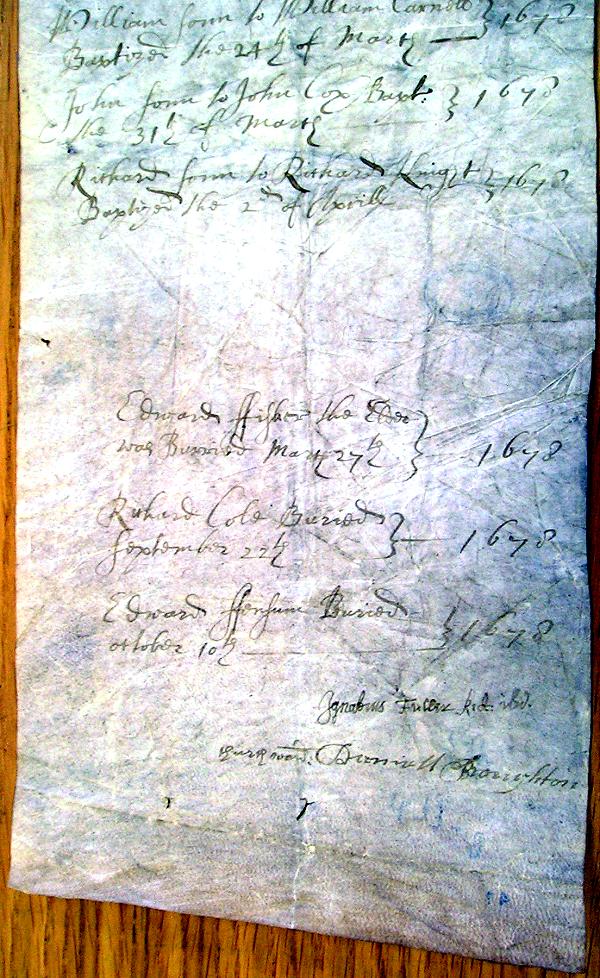 William sonn to William Carnell } 1678
Baptized the 24th of March
John sonn to John Cox Bapt: } 1678
the 31th of March
Richard sonn to Richard Knight } 1678
Baptized the 2d of Aprill
Edward ffisher the Elder
was Burried March 27th } 1678
Richard Cole Buried
September 22th } 1678
Edward ffensum Buried
october 10th } 1678
Ignatius Fuller Rect: ibid.
Churchward: Daniell Boughton